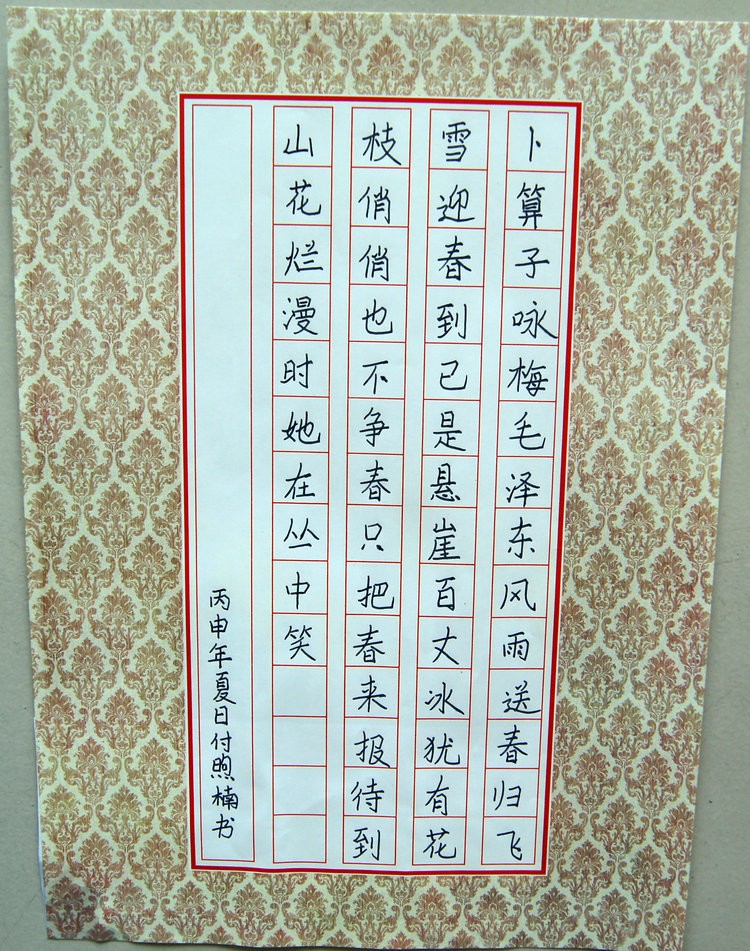 卜算子咏梅毛泽东风雨送春归飞
雪迎春到已是悬崖百丈冰犹有花
枝俏俏也不争春只把春来报待到
山花烂漫时她在丛中笑
丙申年夏日付照楠书